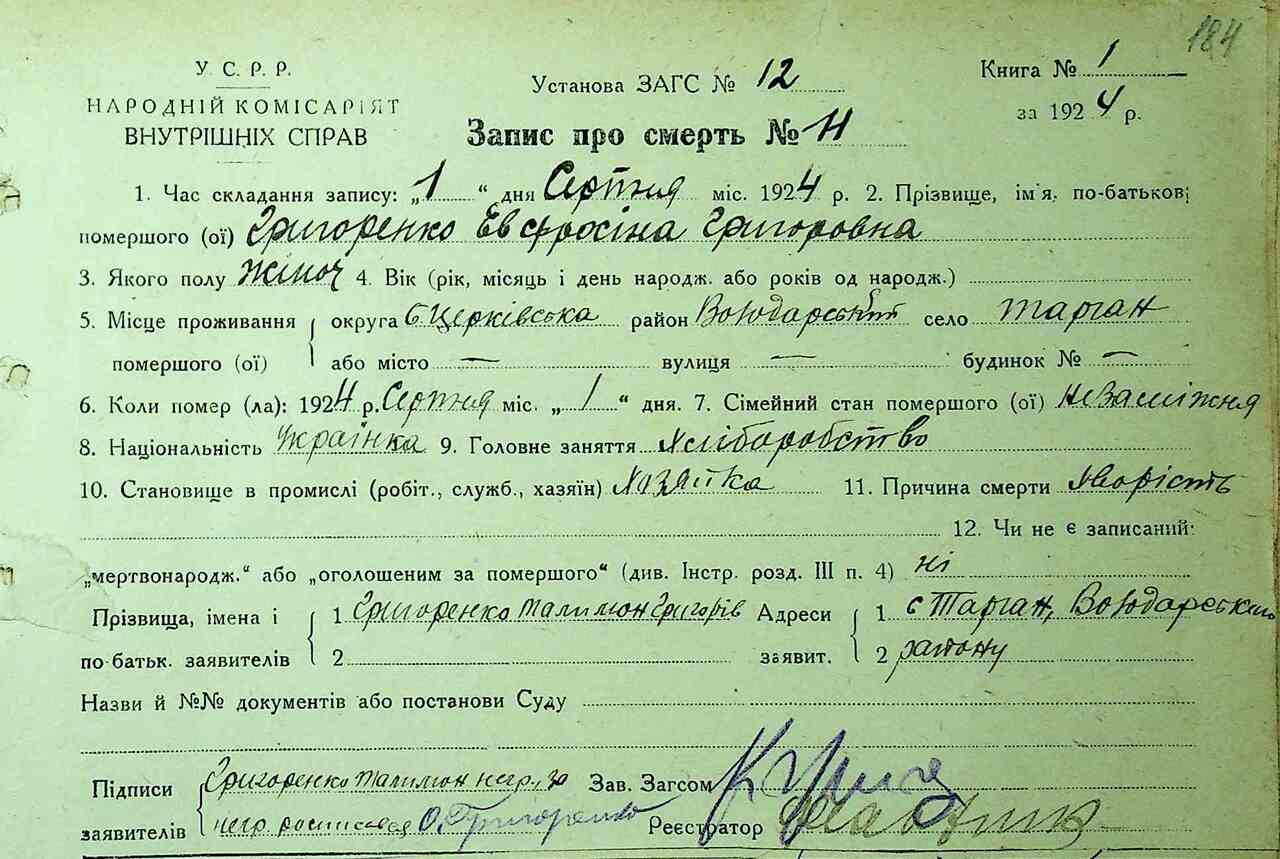 184
У. С. Р. Р.
НАРОДНІЙ КОМІСАРІЯТ
ВНУТРІШНІХ СПРАВ
Установа ЗАГС № 12
Книга № 1
за 1924 р.
Запис про смерть № 11
1. Час складання запису: „1“ дня Серпня міс. 1924 р. 2. Прізвище, ім'я, по-батькові
помершого (ої) Григоренко Евфрохіна Григоровна
3. Якого полу жіноч 4. Вік (рік, місяць і день народж. або років од народж.)
5. Місце проживання округа бЦерківська район Володарський село Тарган
помершого (ої) або місто — вулиця — будинок № —
6. Коли помер (ла): 1924 р. Серпня міс. „1“ дня. 7. Сімейний стан помершого (ої) незаміжня
8. Національність Українка 9. Головне заняття хліборобство
10. Становище в промислі (робіт., служб., хазяїн) хазяйка 11. Причина смерти хворість
12. Чи не є записаний:
„мертвонародж.“ або „оголошеним за помершого“ (див. Інстр. розд. III п. 4) ні
Прізвища, імена і 1 Григоренко Талимон Григорів Адреси 1 с Тарган, Володарський
по-батьк. заявителів 2 заявит. 2 району
Назви й №№ документів або постанови Суду
Підписи Григоренко Талимон негр, за Зав. Загсом
заявителів негр росписався О. Григоренко Реєстратор